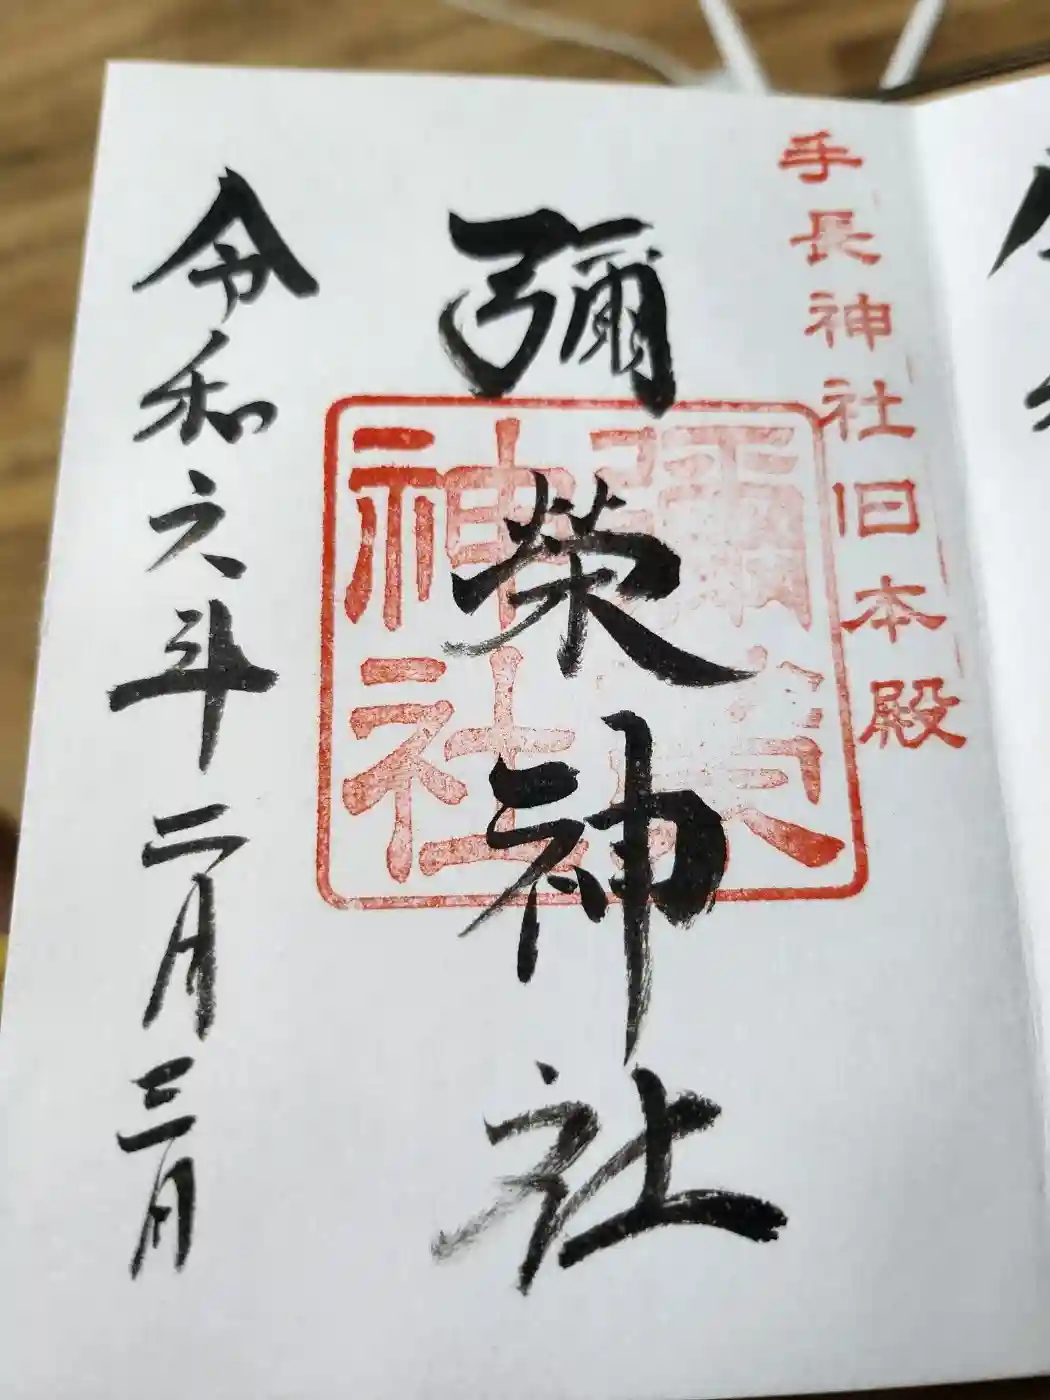 手長神社旧本殿
彌榮神社
彌榮
神社
令和六年二月三日